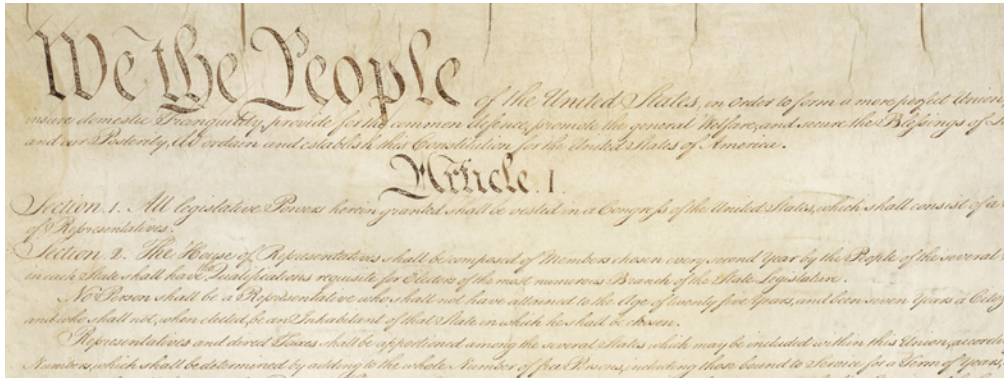 We the People of the United States, in Order to form a more perfect Union
insure domestic Tranquility, provide for the common defence, promote the general Welfare, and secure the Blessings of
and our Posterity, do ordain and establish this Constitution for the United States of America.
Article. I.
Section. 1. All legislative Powers herein granted shall be vested in a Congress of the United States, which shall consist of a
of Representatives.
Section. 2. The House of Representatives shall be composed of Members chosen every second Year by the People of the several
in each State shall have the Qualifications requisite for Electors of the most numerous Branch of the State Legislature.
No Person shall be a Representative who shall not have attained to the Age of twenty five Years, and been seven Years a
and who shall not, when elected, be an Inhabitant of that State in which he shall be chosen.
Representatives and direct Taxes shall be apportioned among the several States which may be included within this Union,
Numbers, which shall be determined by adding to the whole Number of free Persons, including those bound to Service for a Term of Years,